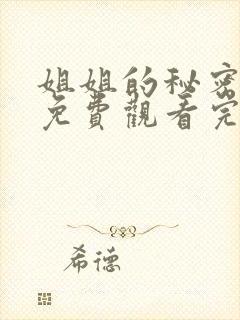 姐姐的秘密
免費觀看完
希德